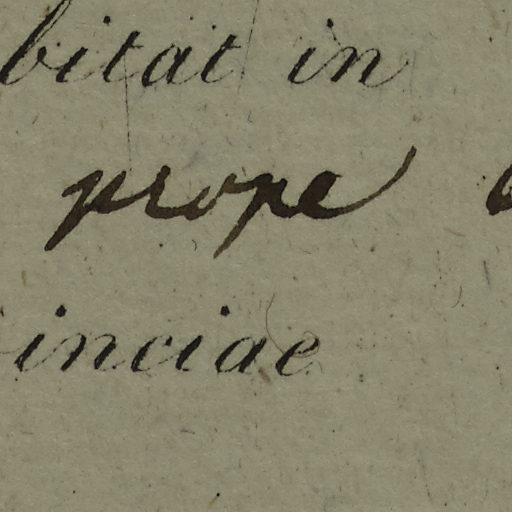 bitat in
prope
inciae